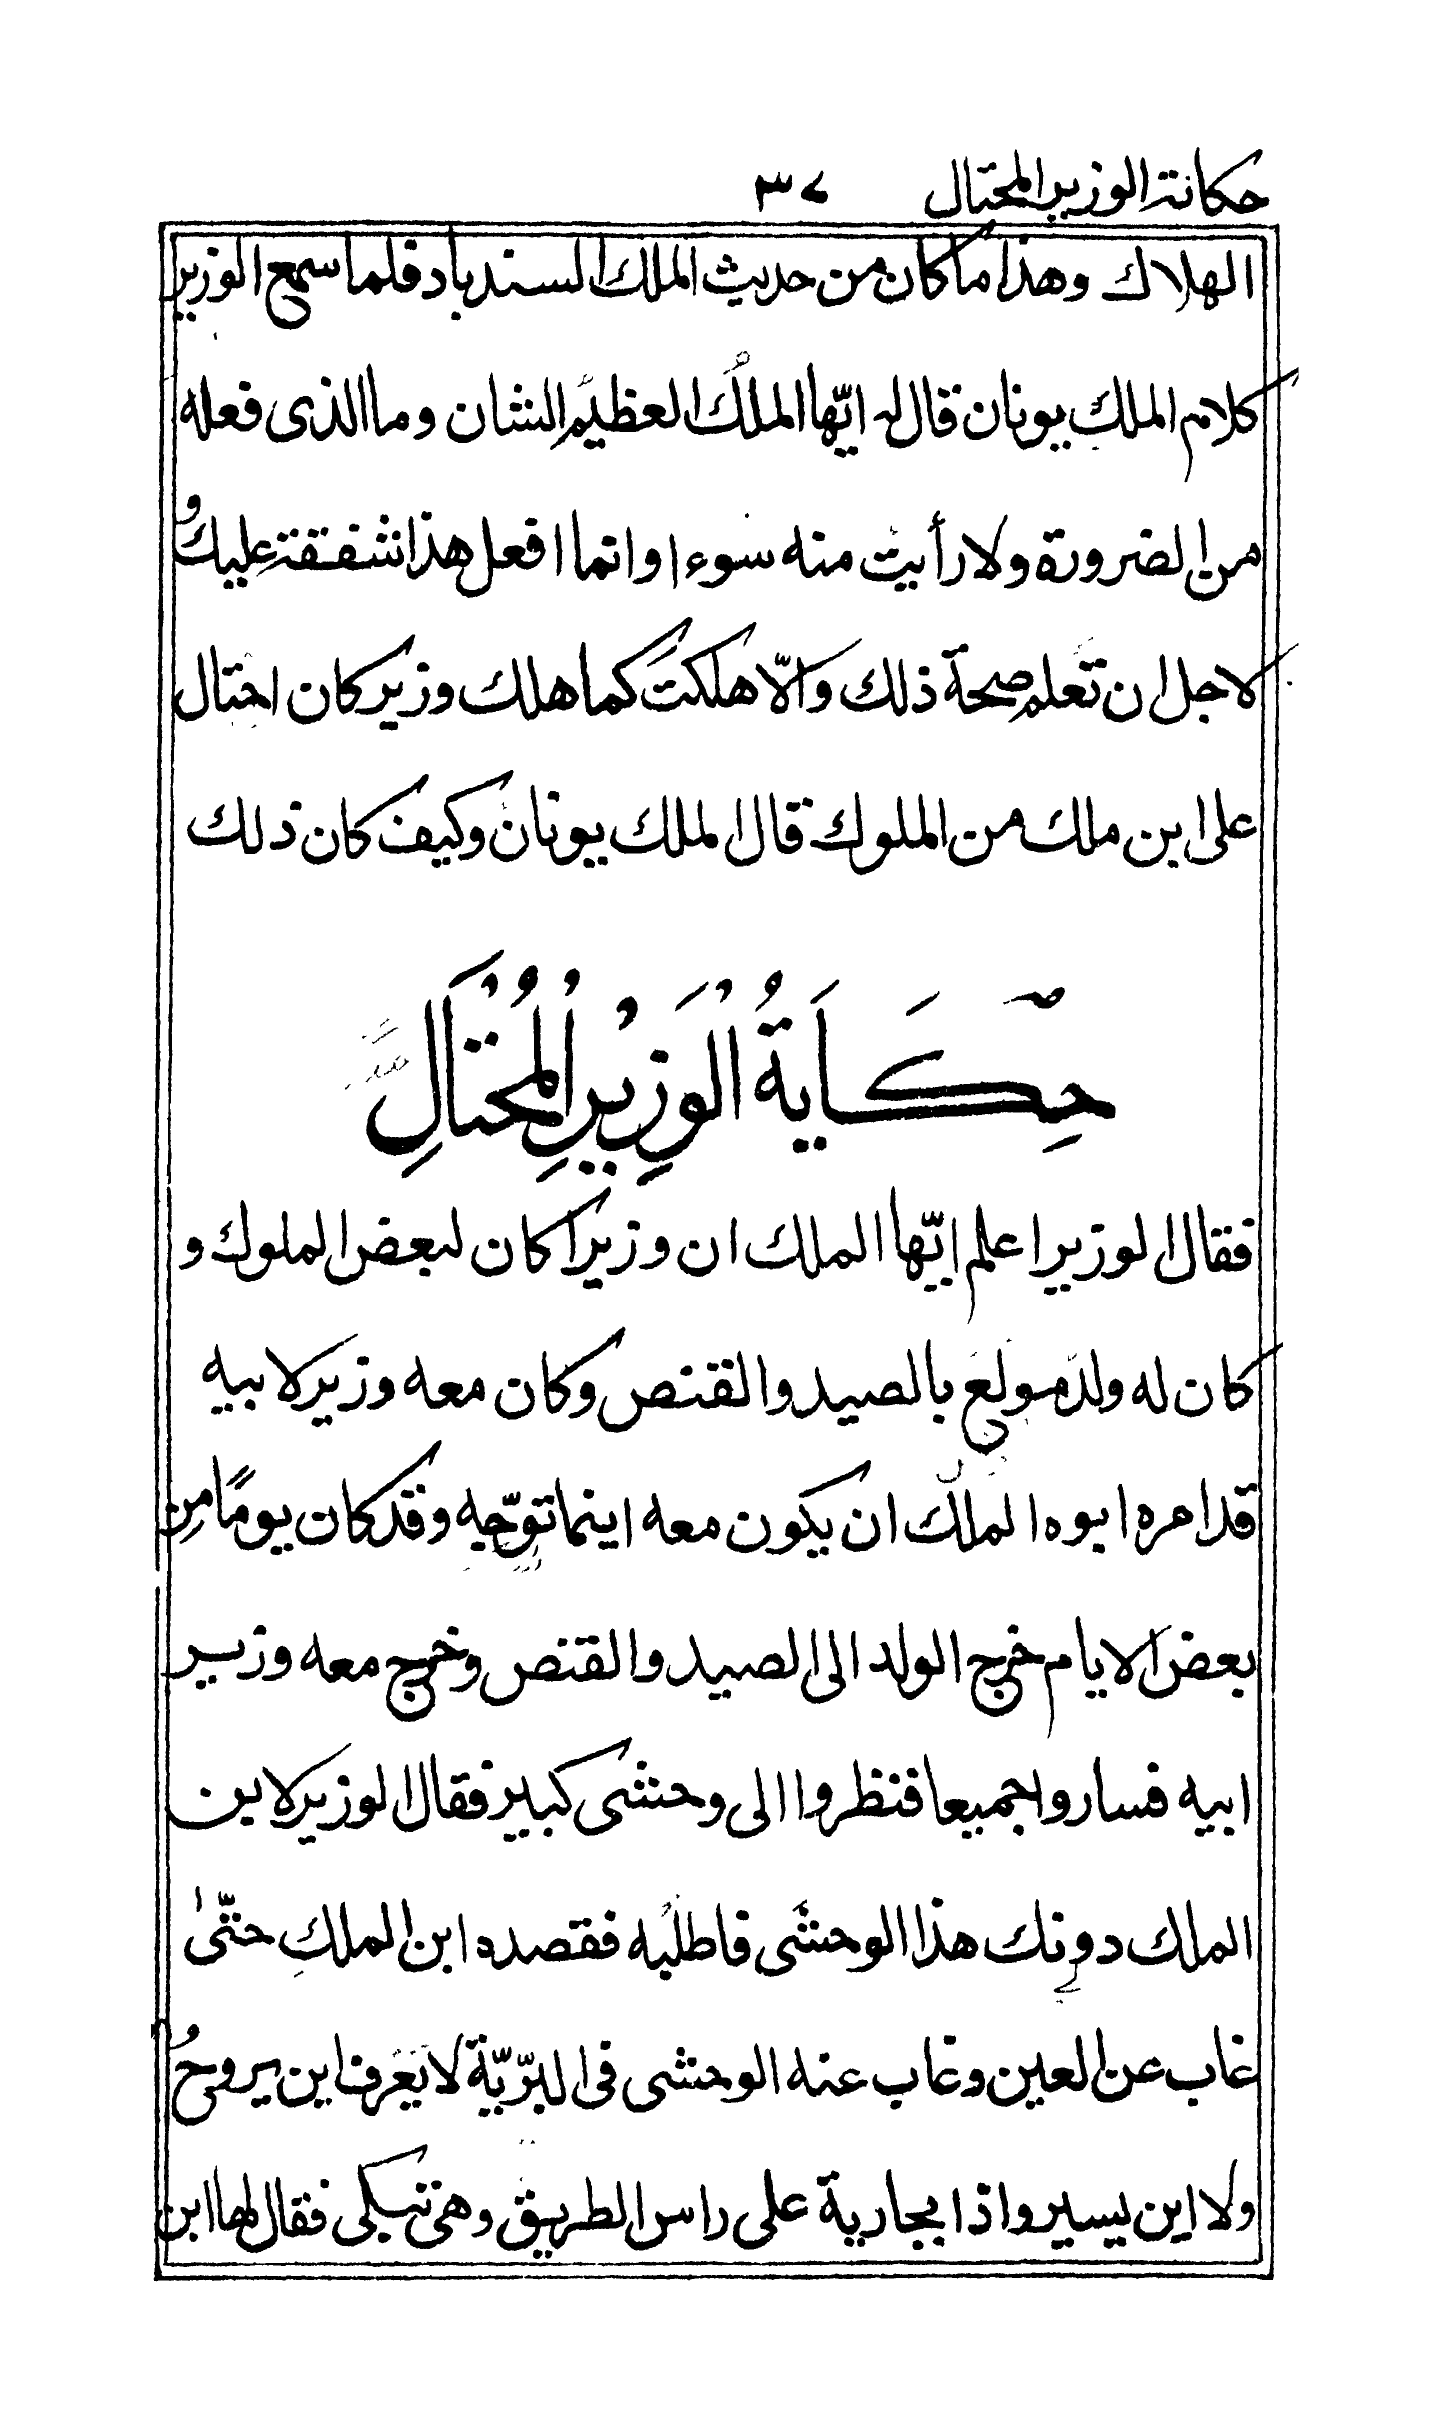 حكاية الوزير المحتال ٣٧
الهلاك وهذا ما كان من حديث الملك السندباد فلما سمع الوزير
كلام الملك يونان قال له ايّها الملكُ العظيم الشان وما الذى فعله
من الضرورة ولا رأيت منه سوءا وانما افعل هذا شفقة عليك و
لاجل ان تعلم صحة ذلك والّا هلكتَ كما هلك وزير كان احتال
على ابن ملك من الملوك قال الملك يونان وكيف كان ذلك
حِكَايَةُ الْوَزِيْرِ الْمُحْتَالِ
فقال الوزير اعلم ايّها الملك ان وزيرا كان لبعض الملوك و
كان له ولد مولع بالصيد والقنص وكان معه وزير لابيه
قد امره ابوه الملك ان يكون معه اينما توجّه وقد كان يومًا من
بعض الايام خرج الولد الى الصيد والقنص وخرج معه وزير
ابيه فساروا جميعا فنظروا الى وحش كبير فقال الوزير لابن
الملك دونك هذا الوحش فاطلبه فقصده ابن الملك حتّى
غاب عن العين وغاب عنه الوحش فى البرّيّة لا يعرف اين يروح
ولا اين يسير واذا بجارية على راس الطريق وهى تبكى فقال لها ابن